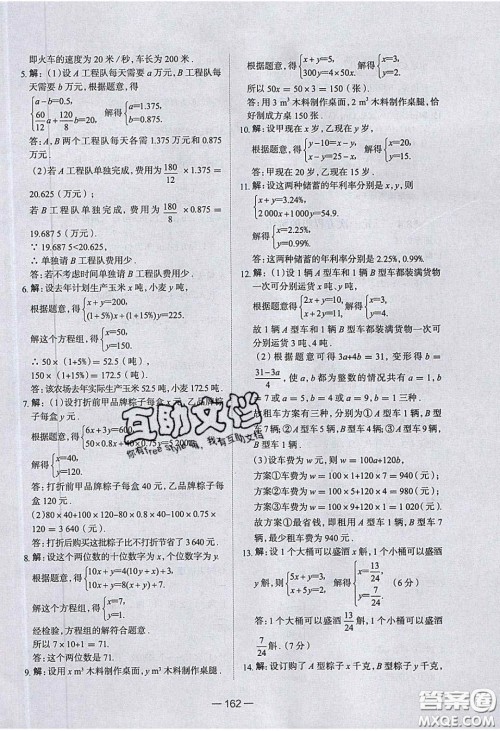 即火车的速度为 20 米/秒,车长为 200 米.
5. 解:(1)设 A 工程队每天需要 a 万元,B 工程队每
天需要 b 万元,根据题意,得
{a-b=0.5, 60/12 a+120/8 b=20, 解得{a=1.375, b=0.875.
答:A,B 两个工程队每天各需 1.375 万元和 0.875
万元.
(2)若 A 工程队单独完成,费用为 180/12 × 1.375 =
20.625(万元);
若 B 工程队单独完成,费用为 180/8 × 0.875 =
19.687 5(万元).
∵ 19.687 5<20.625,
∴ 单独请 B 工程队费用少.
答:若不考虑时间单独请 B 工程队费用少.
6. 解:设去年计划生产玉米 x 吨,小麦 y 吨,
根据题意,得{x+y=200, (1+5%)x+(1+15%)y=225.
解这个方程组,得{x=50, y=150.
∴ 50×(1+5%)=52.5(吨),
150×(1+15%)=172.5(吨).
答:该农场去年实际生产玉米 52.5 吨,小麦 172.5 吨.
7. 解:(1)设打折前甲品牌粽子每盒 x 元,乙品牌粽
子每盒 y 元.
根据题意,得{6x+3y=600, 50×0.8x+40×0.75y=5 200.
解得{x=40, y=120.
答:打折前甲品牌粽子每盒 40 元,乙品牌粽子每
盒 120 元.
(2)80×40+100×120-80×0.8×40-100×0.75×
120=3 640(元).
答:打折后购买这批粽子比不打折节省了 3 640 元.
8. 解:设这个两位数的十位数字为 x,个位数字为 y.
根据题意,得{10x+y=4(10y+x)+3, 10x+y-(10y+x)=54.
解这个方程组,得{x=7, y=1.
经检验,方程组的解符合题意.
所以 7×10+1=71.
答:这个两位数为 71.
9. 解:设用 x m³ 木料制作桌面,y m³ 木料制作桌腿.
根据题意,得{x+y=5, 300y=4×50x. 解得{x=3, y=2.
所以 50x = 50×3 = 150(张).
答:用 3 m³ 木料制作桌面,2 m³ 木料制作桌腿,恰
好制成方桌 150 张.
10. 解:设甲现在 x 岁,乙现在 y 岁,
根据题意,得{y-10=x-y, x-y=25-x. 解得{x=20, y=15.
答:甲现在 20 岁,乙现在 15 岁.
11. 解:设这两种储蓄的年利率分别是 x,y,则
{x+y=3.24%, 2 000x+1 000y=54. 解得{x=2.25%, y=0.99%.
答:这两种储蓄的年利率分别是 2.25%,0.99%.
12. 解:(1)设 1 辆 A 型车和 1 辆 B 型车都装满货物
一次可分别运货 x 吨、y 吨.
根据题意,得{2x+y=10, x+2y=11. 解得{x=3, y=4.
故 1 辆 A 型车和 1 辆 B 型车都装满货物一次可
分别运货 3 吨、4 吨.
(2)根据题意可得 3a+4b = 31,变形,得 b =
(31-3a)/4,使 a,b 都为整数的情况共有 a = 1,
b=7 或 a=5,b=4 或 a=9,b=1 三种.
故租车方案分别为①A 型车 1 辆,B 型车 7 辆;
②A 型车 5 辆,B 型车 4 辆;③A 型车 9 辆,B
型车 1 辆.
(3)设车费为 w 元,则
方案①车费为 w = 100×1+120×7 = 940(元);
方案②车费为 w = 100×5+120×4 = 980(元);
方案③车费为 w = 100×9+120×1 = 1 020(元).
故方案①最省钱,即租用 A 型车 1 辆,B 型车 7
辆,最少车费为 940 元.
13. 解:设 1 个大桶可以盛酒 x 斛,1 个小桶可以盛酒
y 斛,则{5x+y=3, x+5y=2. 解得{x=13/24, y=7/24. (6 分)
答:1 个大桶可以盛酒 13/24 斛,1 个小桶可以盛酒
7/24 斛.(7 分)
14. 解:设订购了 A 型粽子 x 千克,B 型粽子 y 千克,
— 162 —
互助文档
你有free style嘛,我有互助文档
答案圈
MXQE.COM